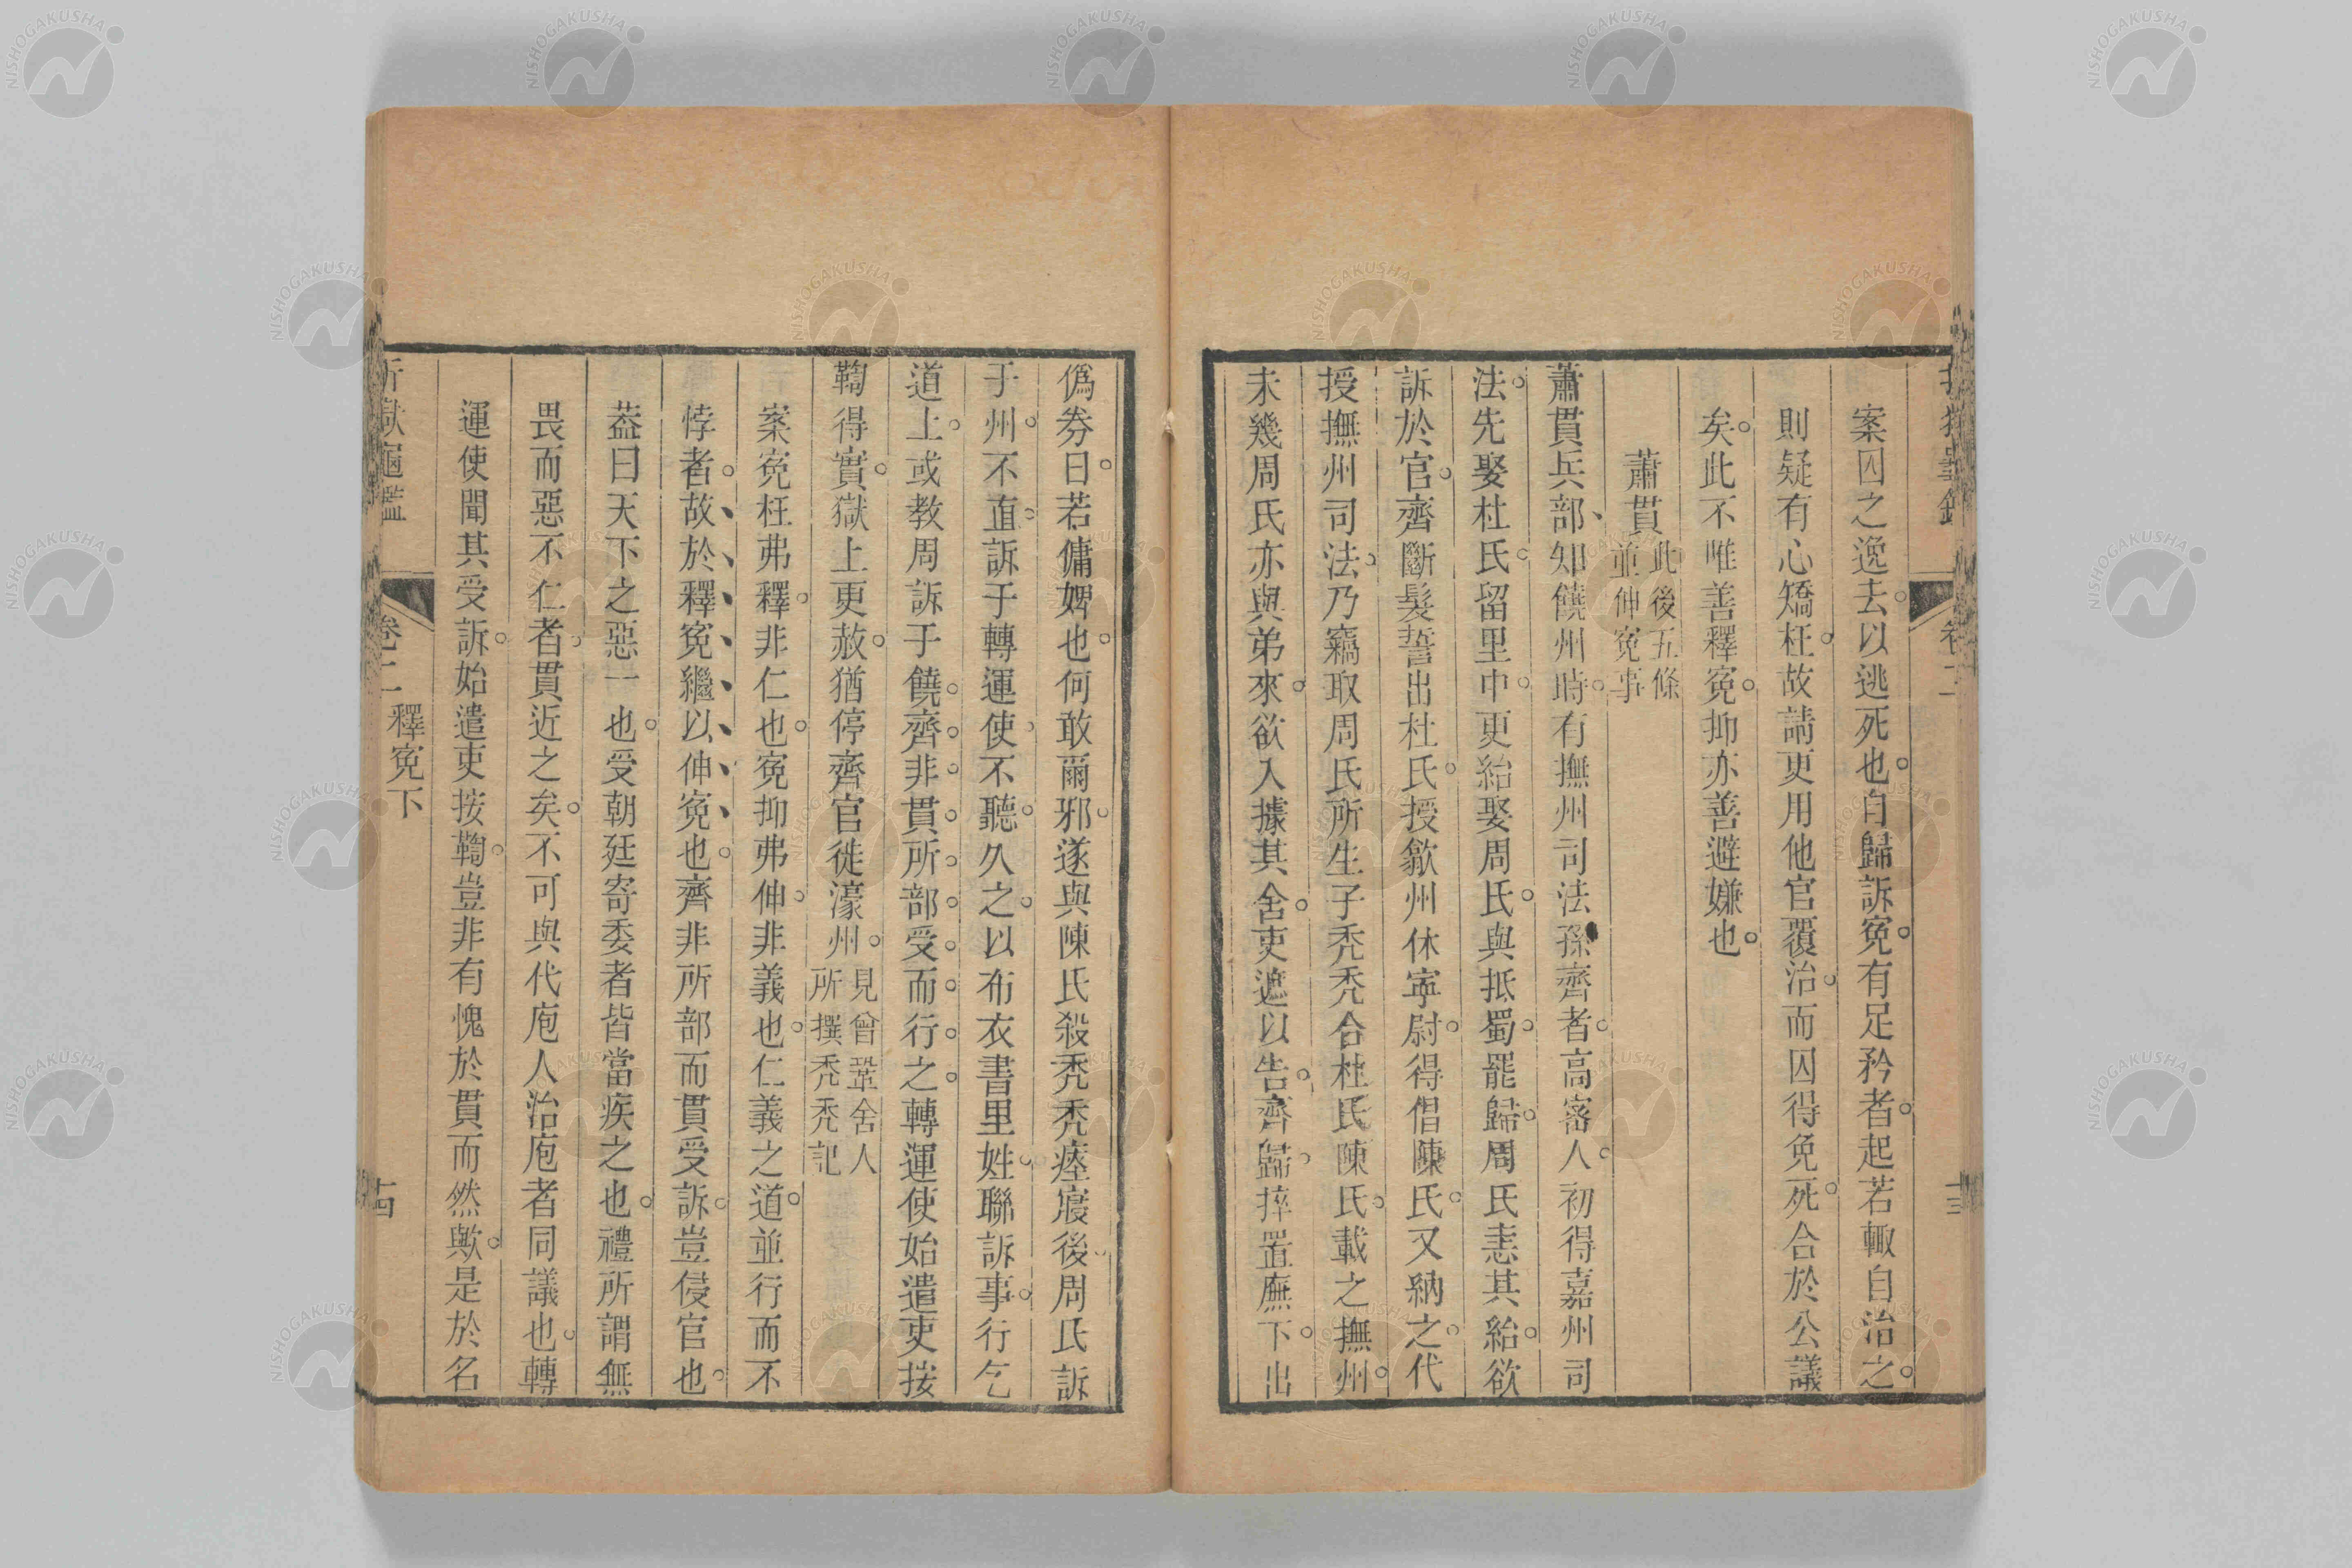 案囚之逸去以逃死也自歸訴寃有足矜者起若輙自治之
則疑有心矯枉故請更用他官覆治而囚得免死合於公議
矣此不唯善釋寃抑亦善避嫌也
蕭貫 此後五條
並伸寃事
蕭貫兵部知饒州時有撫州司法孫齊者高密人初得嘉州司
法先娶杜氏留里中更紿娶周氏與抵蜀罷歸周氏恚其紿欲
訴於官齊斷髮誓出杜氏授歙州休寧尉得倡陳氏又納之代
授撫州司法乃竊取周氏所生子禿禿合杜氏陳氏載之撫州
未幾周氏亦與弟來欲入據其舍吏遮以告齊歸捽置廡下出
僞劵曰若傭婢也何敢爾邪遂與陳氏殺禿禿瘞寢後周氏訴
于州不直訴于轉運使不聽久之以布衣書里姓聯訴事行乞
道上或教周訴于饒齊非貫所部受而行之轉運使始遣吏按
鞫得實獄上更赦猶停齊官徙濠州 見曾鞏舍人
所撰禿禿記
案寃枉弗釋非仁也寃抑弗伸非義也仁義之道並行而不
悖者故於釋寃繼以伸寃也齊非所部而貫受訴豈侵官也
葢曰天下之惡一也受朝廷寄委者皆當疾之也禮所謂無
畏而惡不仁者貫近之矣不可與代庖人治庖者同議也轉
運使聞其受訴始遣吏按鞫豈非有愧於貫而然歟是於名
折獄龜鑑 卷二 釋寃下 十四
NISHOGAKUSHA